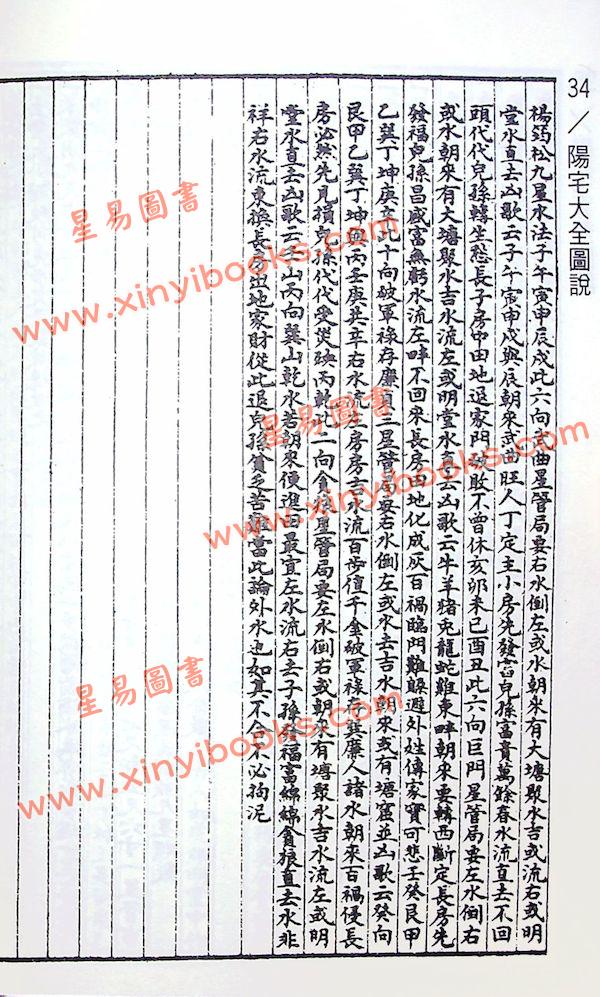 34／陽宅大全圖說
楊筠松九星水法子午寅申辰戌此六向武曲星管局要右水倒左或水朝來有大塘聚水吉或流右或明
堂水直去凶歌云子午寅申戌與辰朝來武曲旺人丁定主小房先發富兒孫富貴萬餘春水流直去不回
頭代代兒孫轉生愁長子房中田地退家門敗敗不曾休亥卯未巳酉丑此六向巨門星管局要左水倒右
或水朝來有大塘聚水吉水流左或明堂水直去凶歌云牛羊猪兔龍蛇雞東畔朝來要轉西斷定長房先
發福兒孫昌盛富無虧水流左畔不回來長房田地化成灰百禍臨門難躲避外姓傳家實可悲壬癸艮甲
乙巽丁坤庚辛此十向破軍祿存廉貞三星管局要右水倒左或水去吉水朝來或有塘窟並凶歌云癸向
艮甲乙巽丁坤與丙壬庚共辛右水流左房房吉水流百步值千金破軍祿存與廉人諸水朝來百禍侵長
房必然先見損兒孫代代受災殃丙乾此二向貪狼星管局要左水倒右或朝來有塘聚水吉水流左或明
堂水直去凶歌云壬山丙向巽山乾水若朝來便進田最宜左水流右去子孫發福富綿綿貪狼直去水非
祥右水流東換長房田地家財從此退兒孫貧乏苦難當此論外水也如真不合不必拘泥
星易圖書
www.xinyibooks.com
星易圖書
www.xinyibooks.com
星易圖書
www.xinyibooks.com